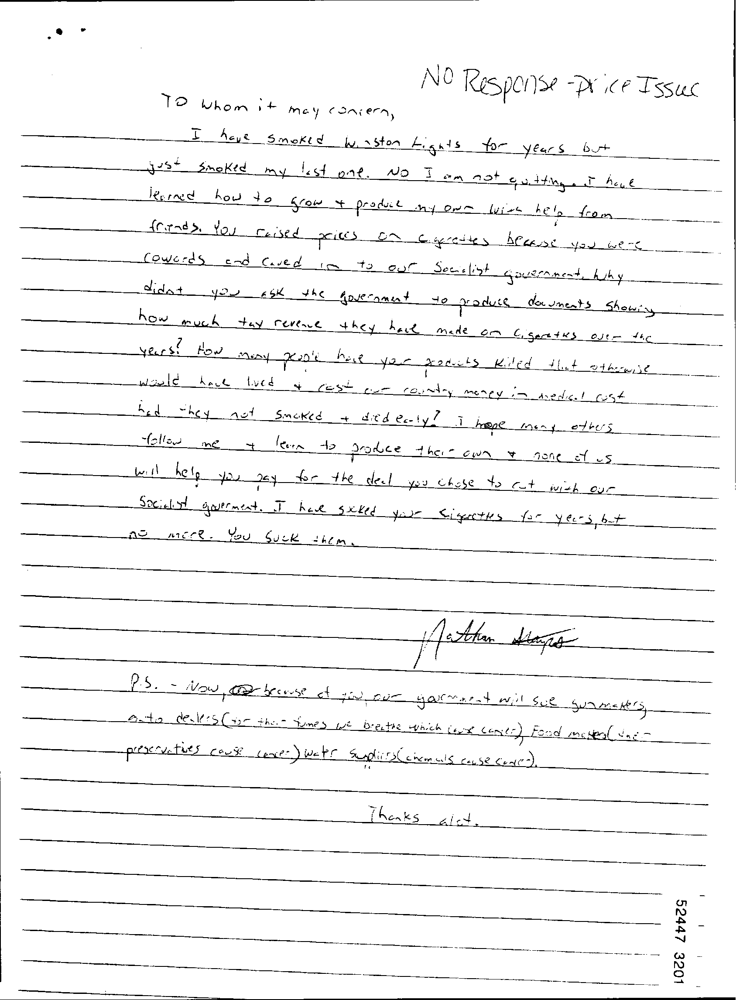 NO Response - Price Issue
TO whom it may concern,
I have smoked Winston Lights for years but
just smoked my last one. NO I am not quitting. I have
learned how to grow + produce my own with help from
friends. You raised prices on cigarettes because you were
cowards and caved in to our Socialist government. Why
didnt you ask the government to produce documents showing
how much tax revenue they have made on cigarettes over the
years? How many people have your products killed that otherwise
would have lived + cost our country money in medical cost
had they not smoked + died early? I hope many others
follow me + learn to produce their own + none of us
will help you pay for the deal you chose to cut with our
Socialist goverment. I have sucked your cigarettes for years, but
no more. You suck them.
Nathan
P.S. - Now, because of you, our goverment will sue gunmakers,
auto dealers (for their fumes we breathe which cause cancer), Food
preservatives cause cancer) Water Suppliers (chemicals cause cancer).
Thanks alot.
52447 3201